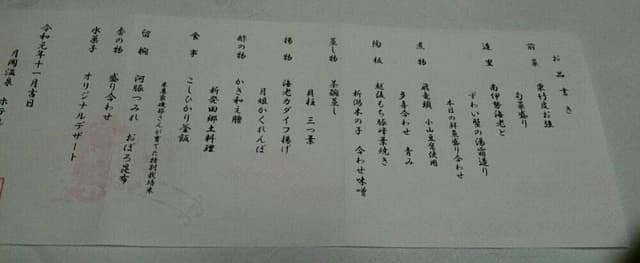 お品書き
前菜
栗竹皮お強
旬菜盛り
造里
南伊勢海老と
ずわい蟹の湯霜造り
本日の鮮菜盛り合わせ
煮物
飛竜頭 小山豆腐使用
多喜合わせ 青み
陶板
越後もち豚時葉焼き
新潟木の子 合わせ味噌
蒸し物
茶碗蒸し
貝柱 三つ葉
揚物
海老カダイフ揚げ
月姫かくれんば
酢の物
かき和え膾
新発田郷土料理
食事
こしひかり釜飯
留椀
河豚つみれ おぼろ昆布
香の物
盛り合わせ
水菓子
オリジナルデザート
令和元年十一月吉日
月岡温泉 ホテル